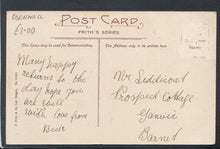 CORNWALL
£3.00
POST CARD
FRITH'S SERIES
This Space may be used for Communication
The Address only to be written here
Many happy
returns to the
day hope you
are still
with love from
Mr
Prospect Cottage
Barnet